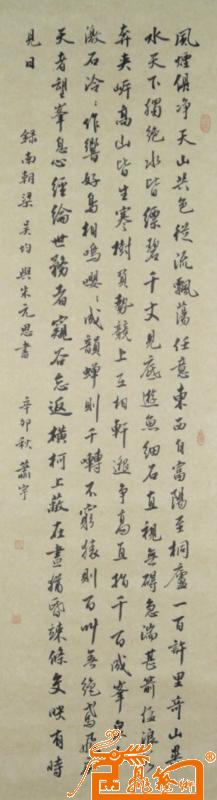 風煙俱净天山共色從流飄蕩任意東西自富陽至桐廬一百許里奇山異
水天下獨絕水皆縹碧千丈見底遊魚細石直視無礙急湍甚箭猛浪
奔夾岸高山皆生寒樹負勢競上互相軒邈爭高直指千百成峯泉
激石泠〻作響好鳥相鳴嚶〻成韻蟬則千轉不窮猿則百叫無絕鳶飛戾
天者望峯息心經綸世務者窺谷忘返橫柯上蔽在晝猶昏疎條交映有時
見日
錄南朝梁吳均與朱元思書 辛卯秋 蕭宇